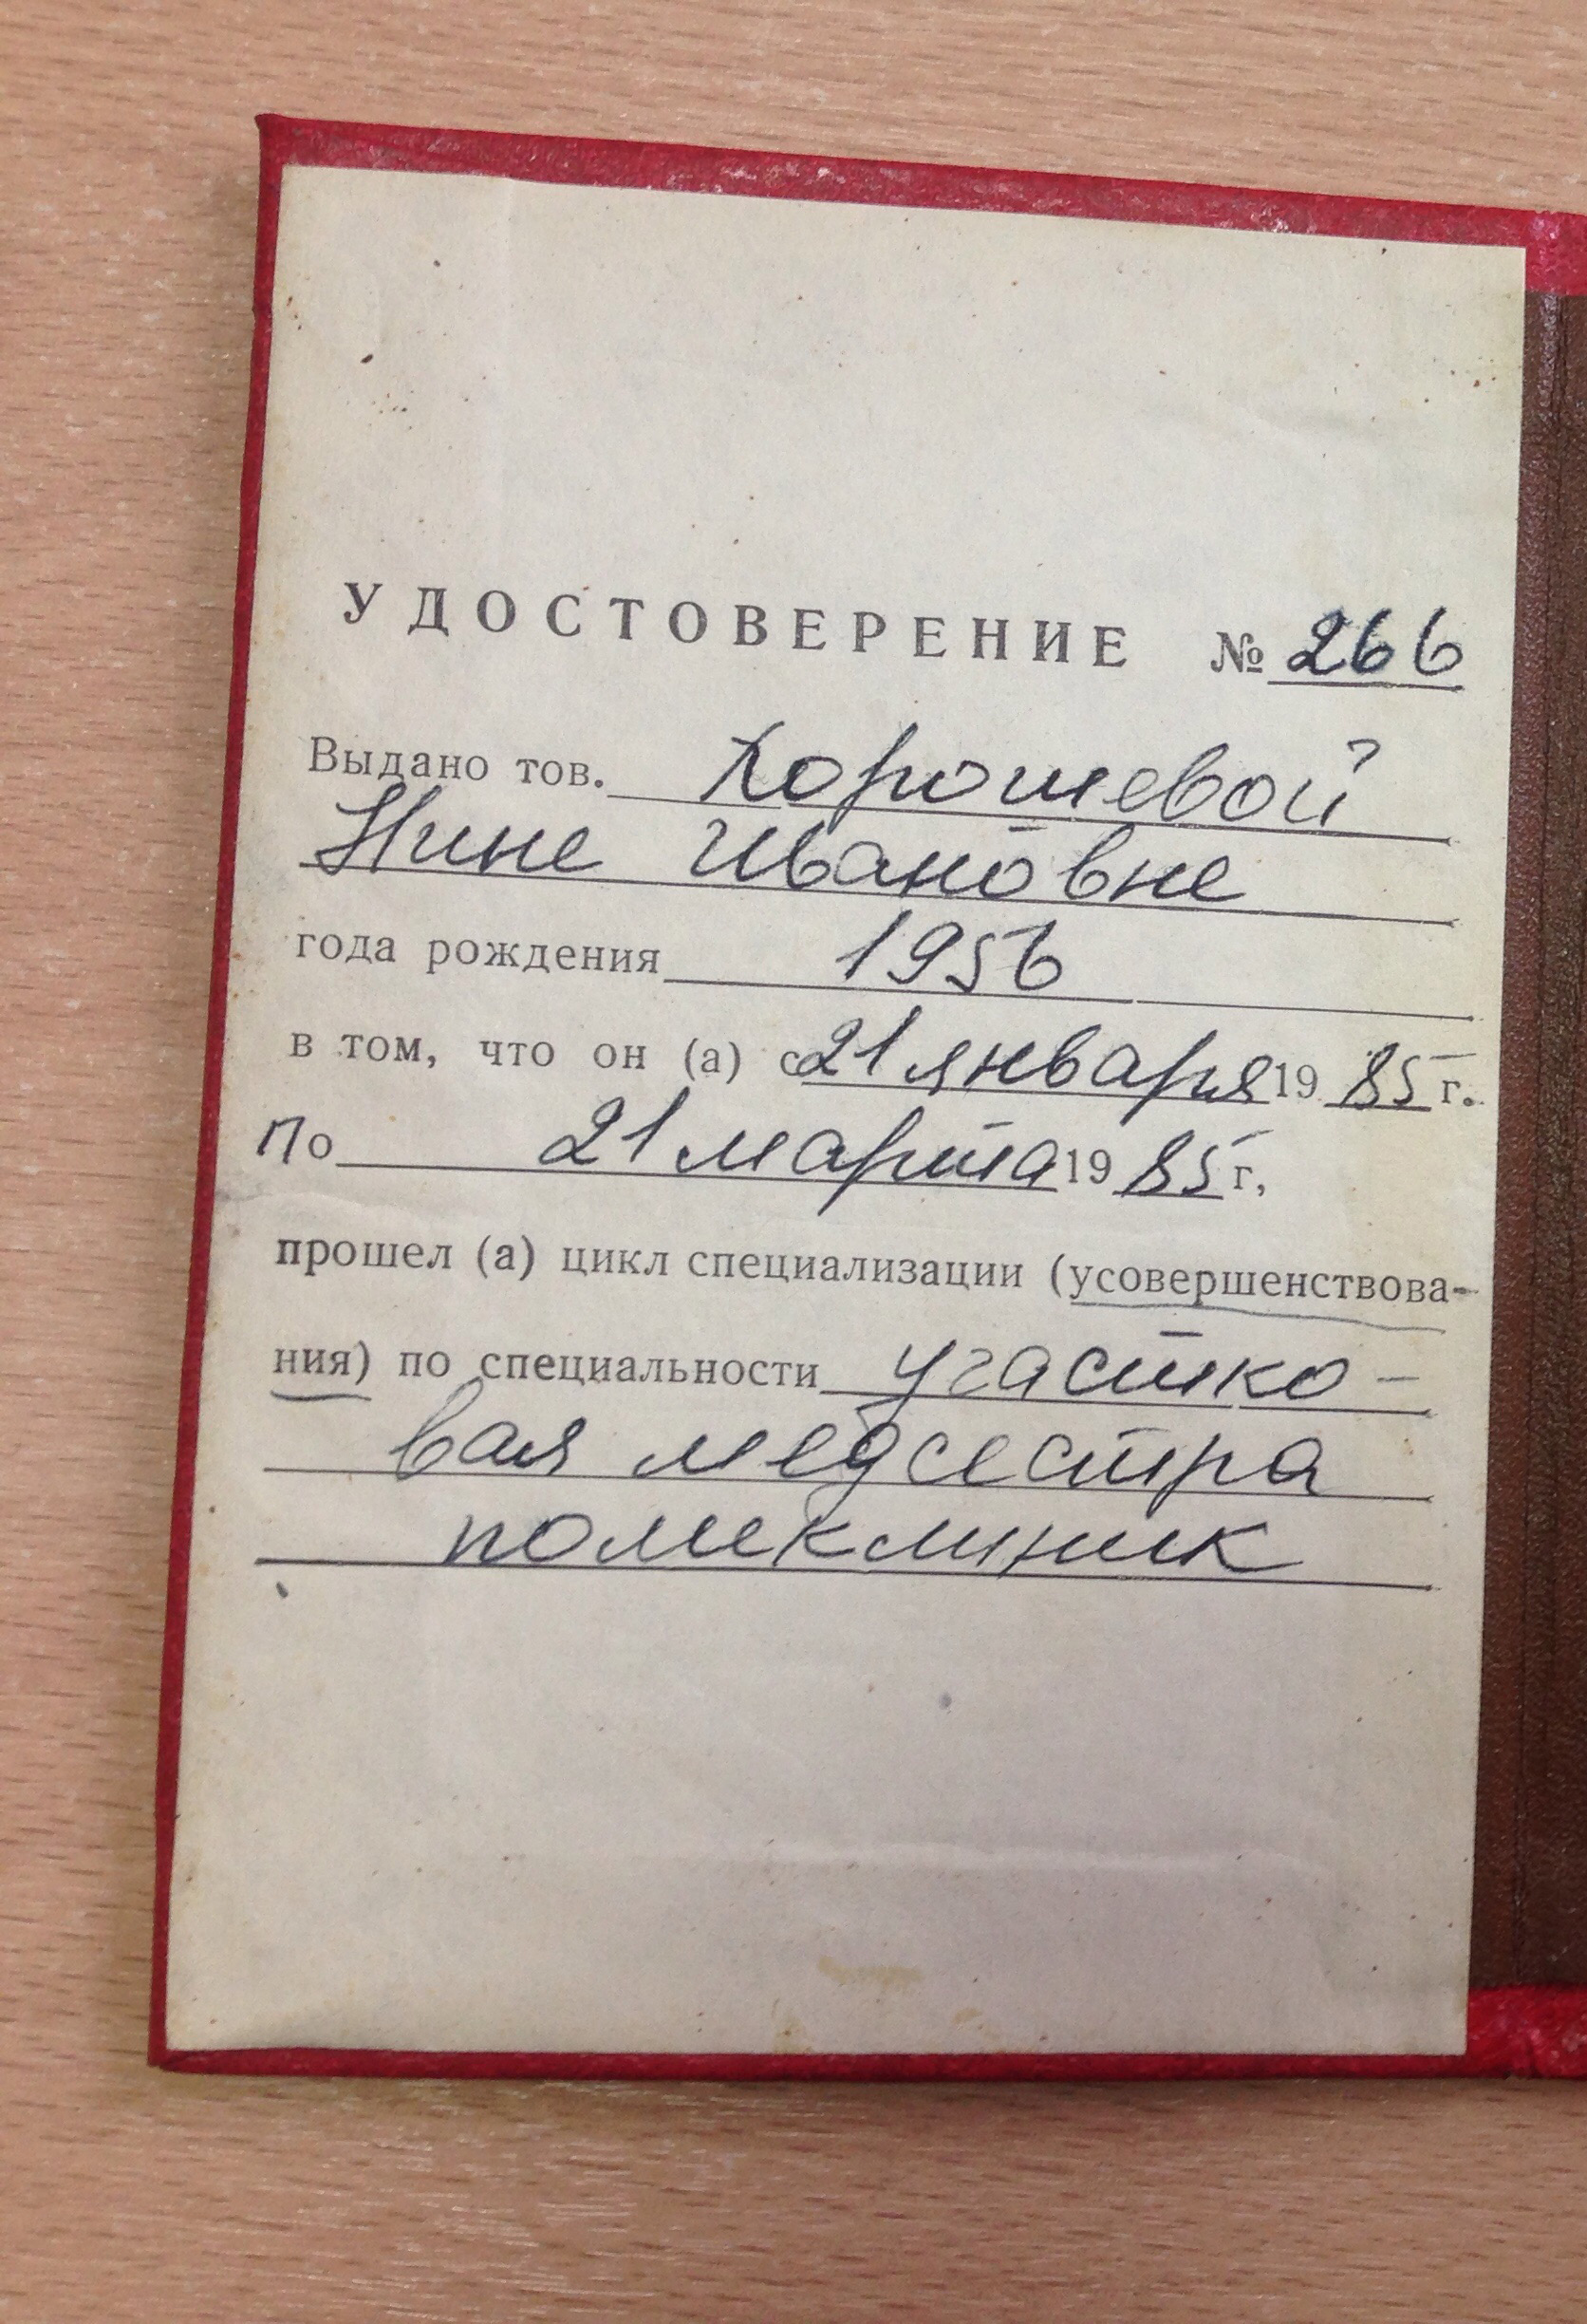 УДОСТОВЕРЕНИЕ № 266
Выдано тов. Хорошевой
Нине Ивановне
года рождения 1956
в том, что он (а) с 21 января 1985 г.
по 21 марта 1985 г,
прошел (а) цикл специализации (усовершенствова-
ния) по специальности участко-
вая медсестра
поликлиник